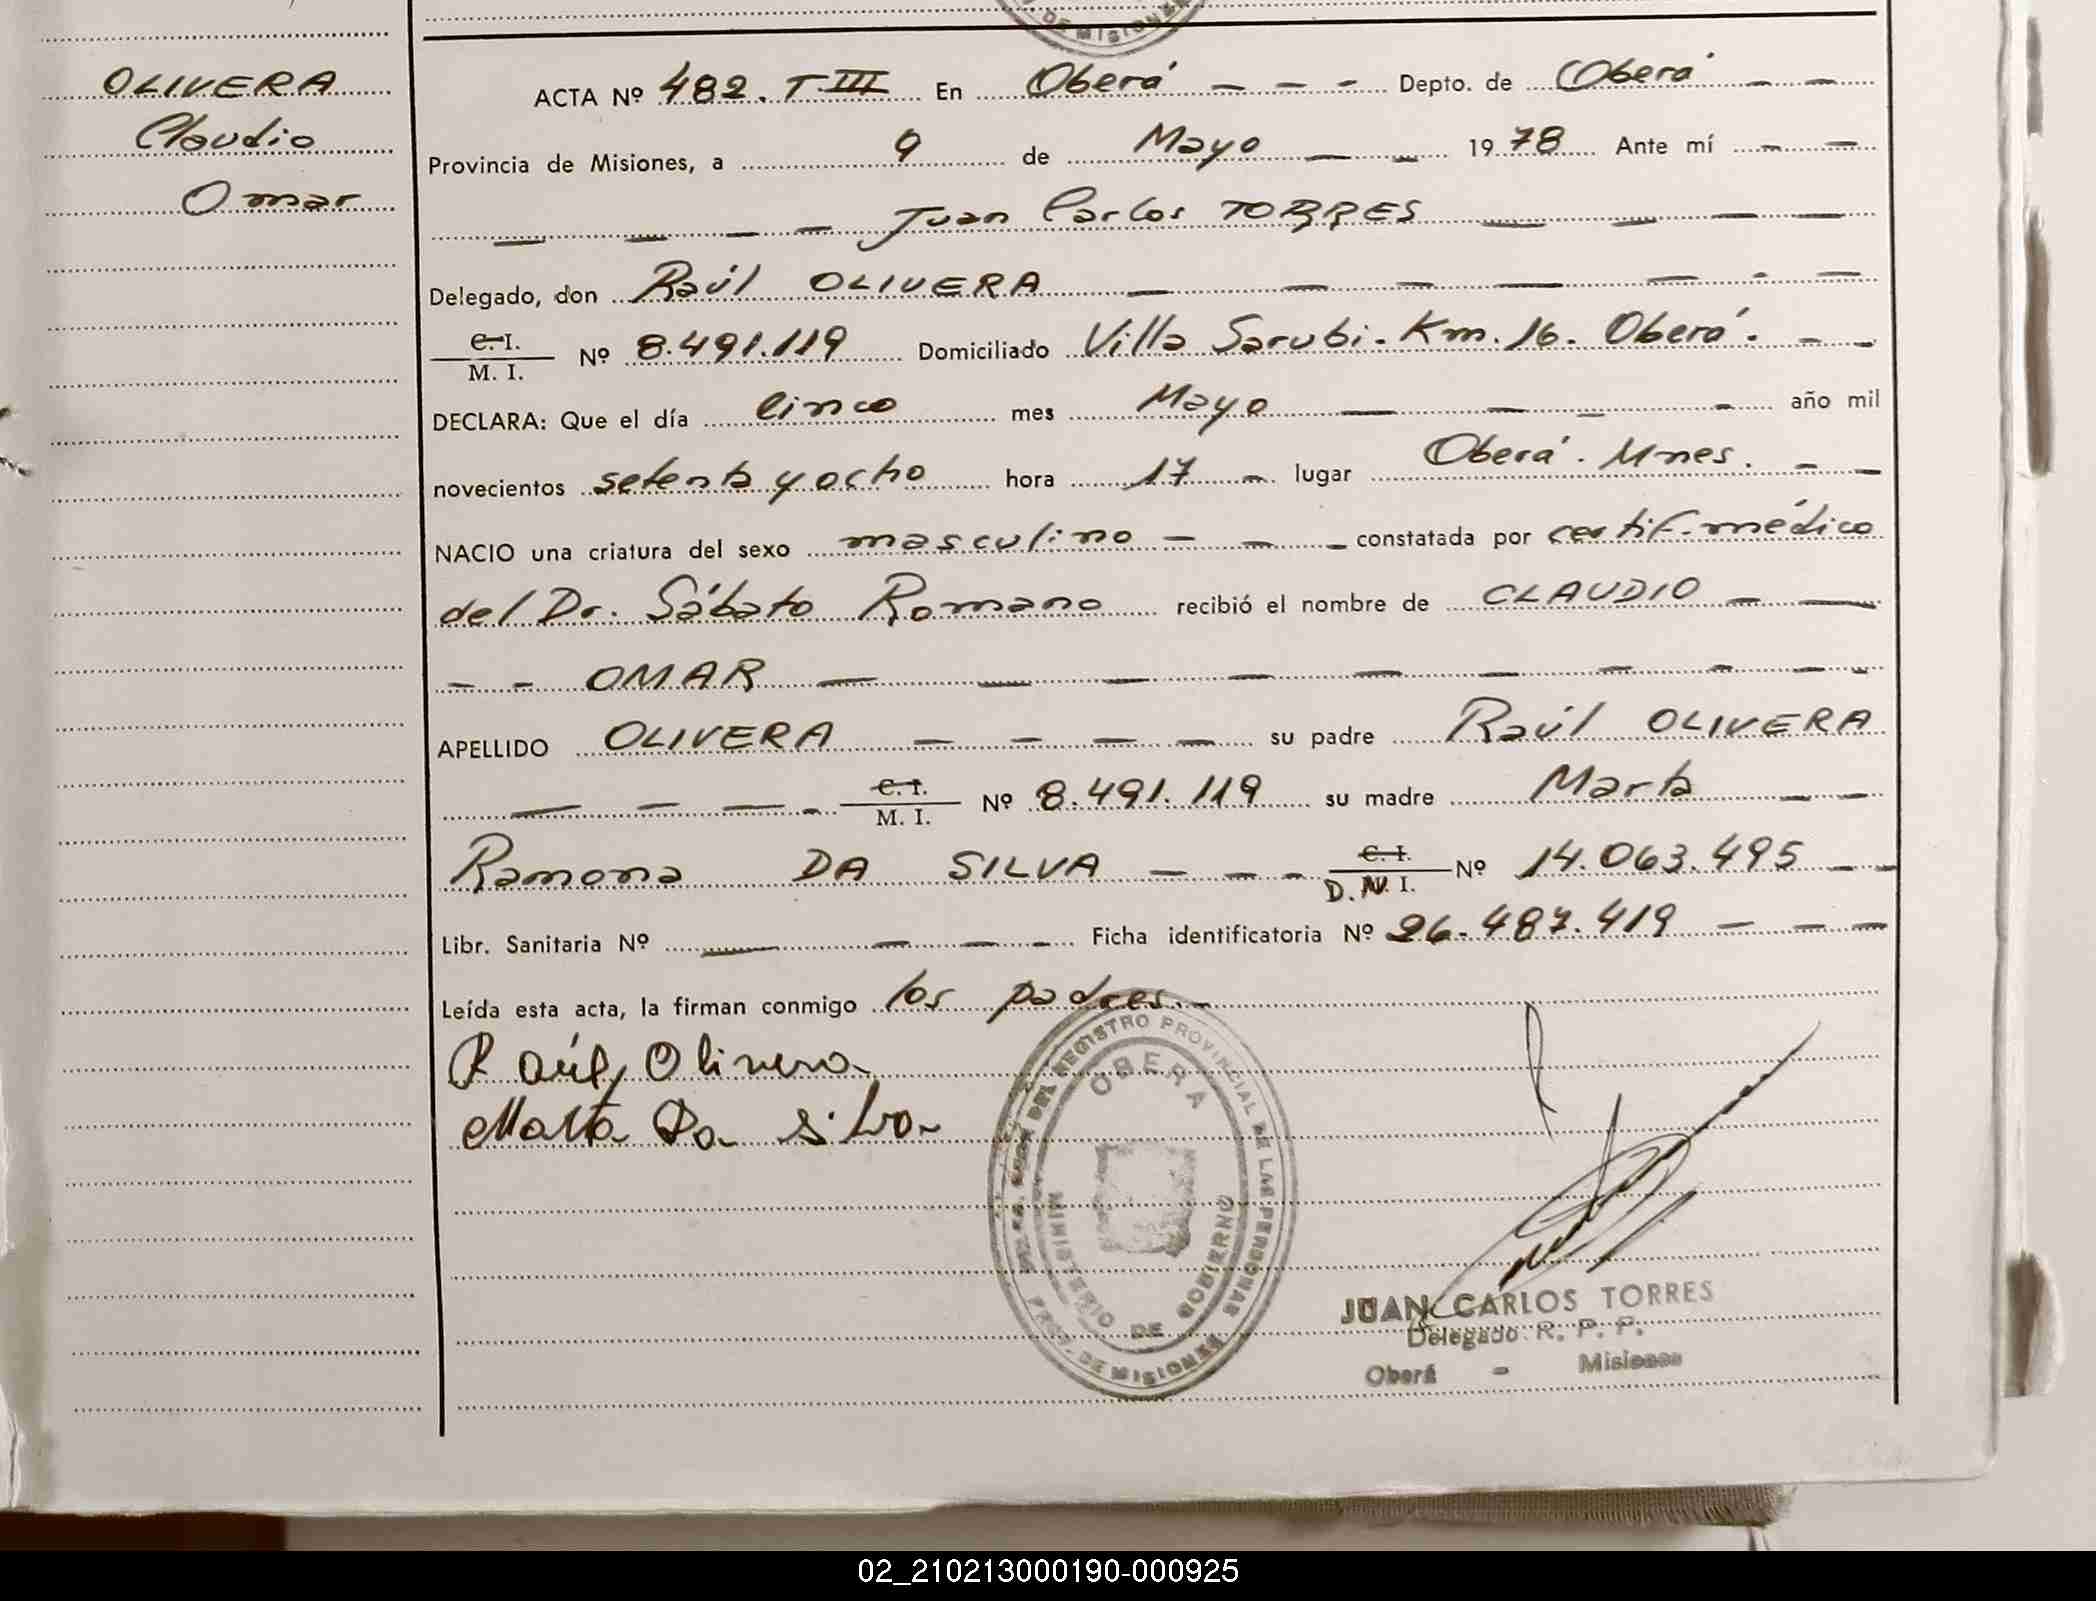 DE MISIONES
OLIVERA
Claudio
Omar
ACTA Nº 482. T III En Oberá - - - Depto. de Oberá - -
Provincia de Misiones, a 9 de Mayo - - 1978 Ante mí - -
- - - - Juan Carlos TORRES - - - -
Delegado, don Raúl OLIVERA - - - - - - -
C. I.
M. I. Nº 8.491.119 Domiciliado Villa Sarubi. Km. 16. Oberá. - -
DECLARA: Que el día cinco mes Mayo - - - - año mil
novecientos setenta y ocho hora 17 - lugar Oberá. Mnes. - -
NACIO una criatura del sexo masculino - - - constatada por certif. médico
del Dr. Sábato Romano recibió el nombre de CLAUDIO - -
- - OMAR - - - - - - - - -
APELLIDO OLIVERA - - - - su padre Raúl OLIVERA
- - - - C. I.
M. I. Nº 8.491.119 su madre Marta - -
Ramona DA SILVA - - - C. I.
D. N. I. Nº 14.063.495 - -
Libr. Sanitaria Nº - - - - Ficha identificatoria Nº 26.487.419 - - -
Leída esta acta, la firman conmigo los padres. -
Raúl Olivera
Marta Da Silva
DEL REGISTRO PROVINCIAL DE LAS PERSONAS
OBERA
MINISTERIO DE GOBIERNO
PROV. DE MISIONES
JUAN CARLOS TORRES
Delegado R. P. P.
Oberá - Misiones
02_210213000190-000925